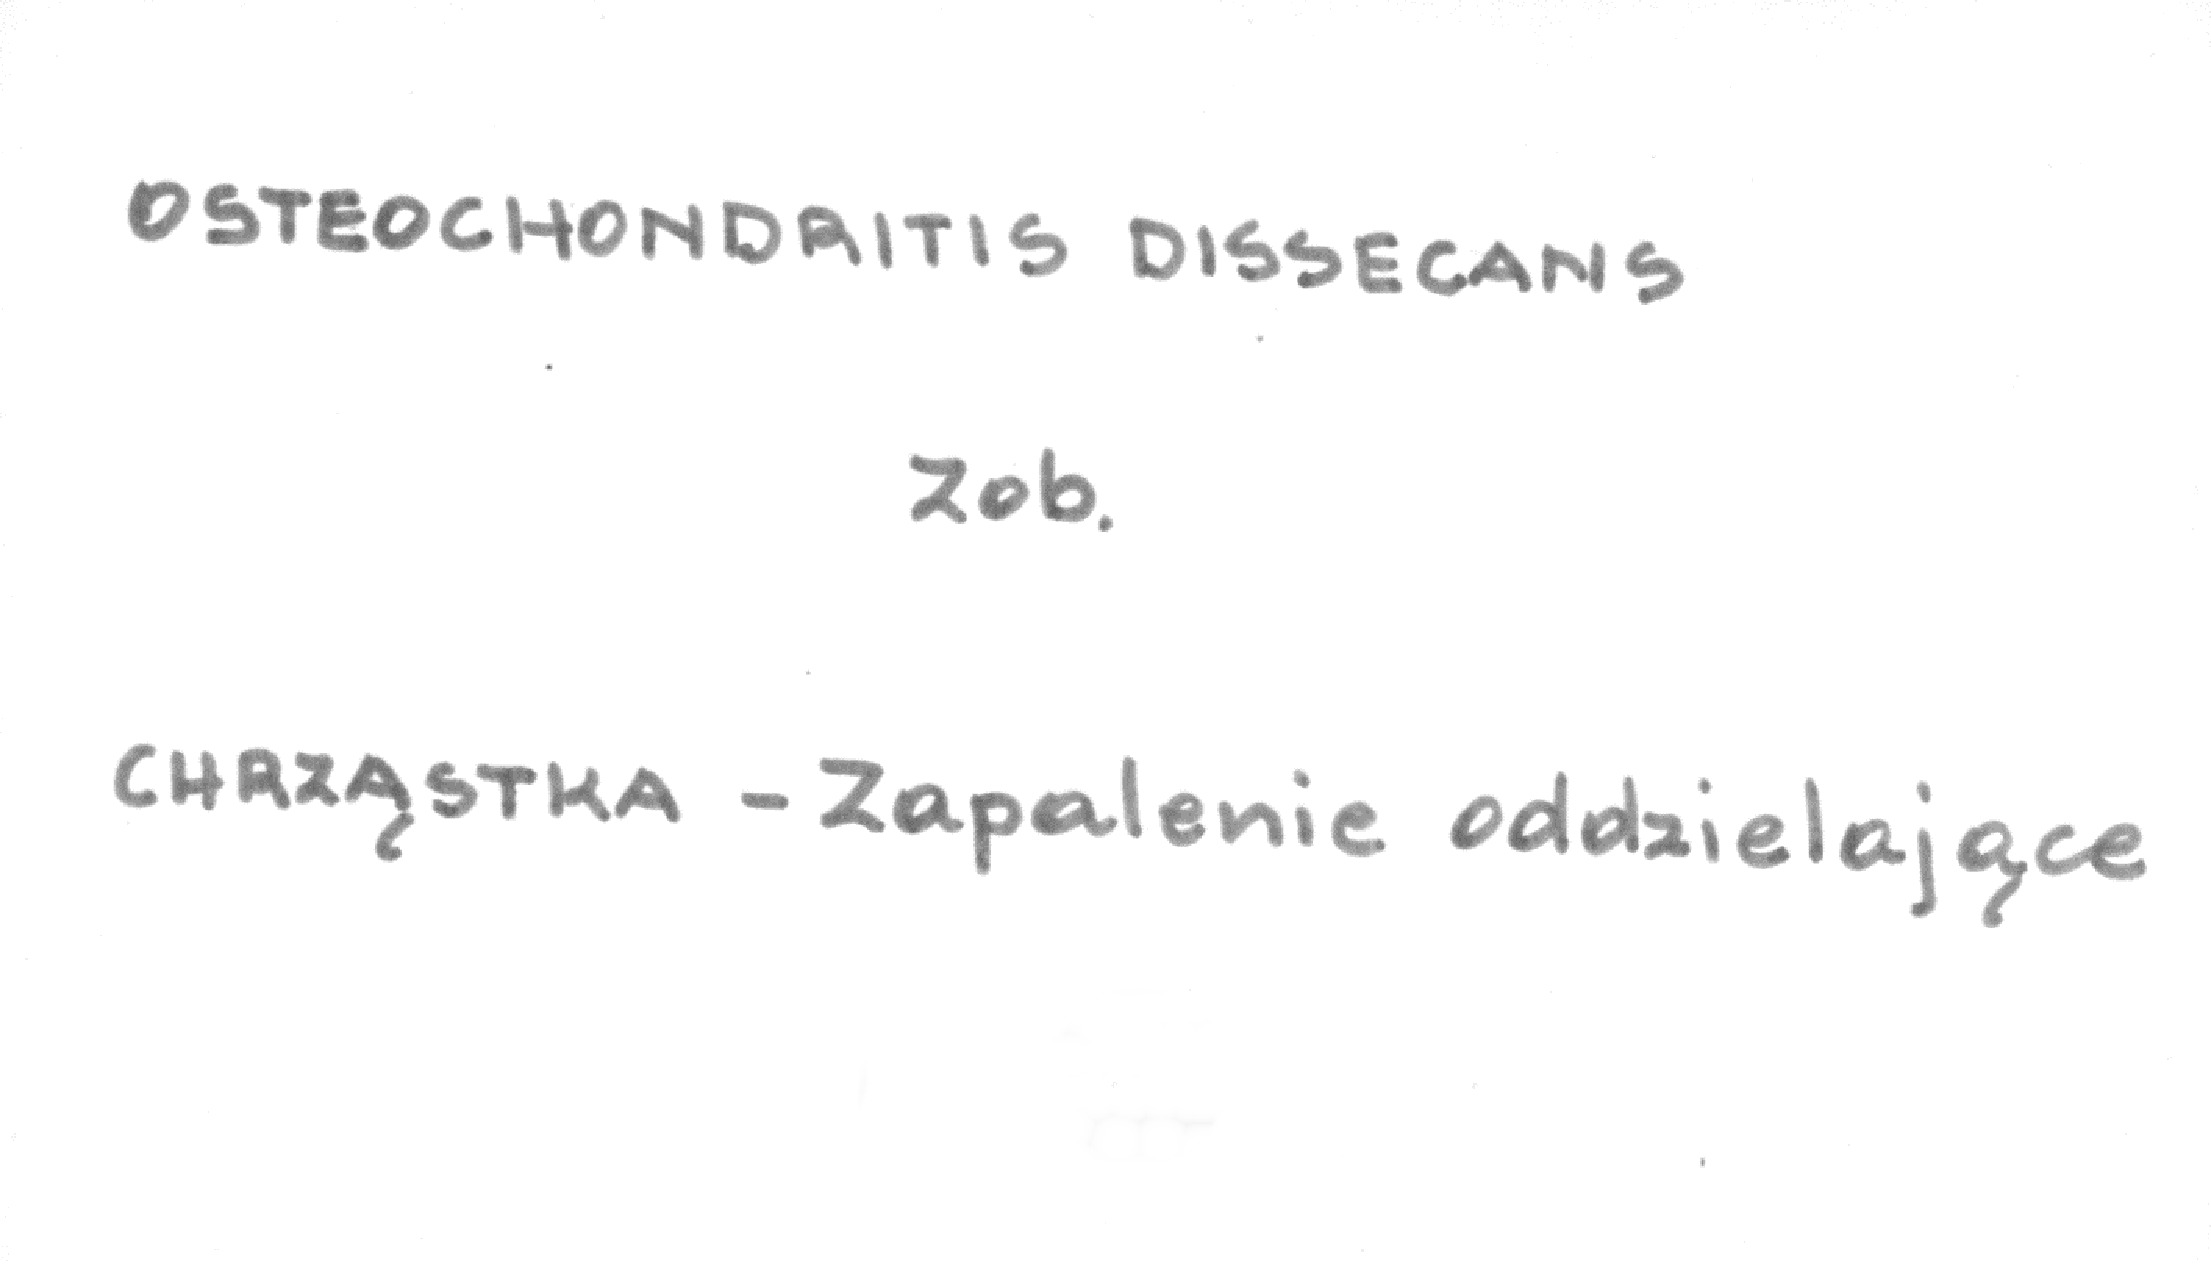 OSTEOCHONDRITIS DISSECANS
Zob.
CHRZĄSTKA - Zapalenie oddzielające